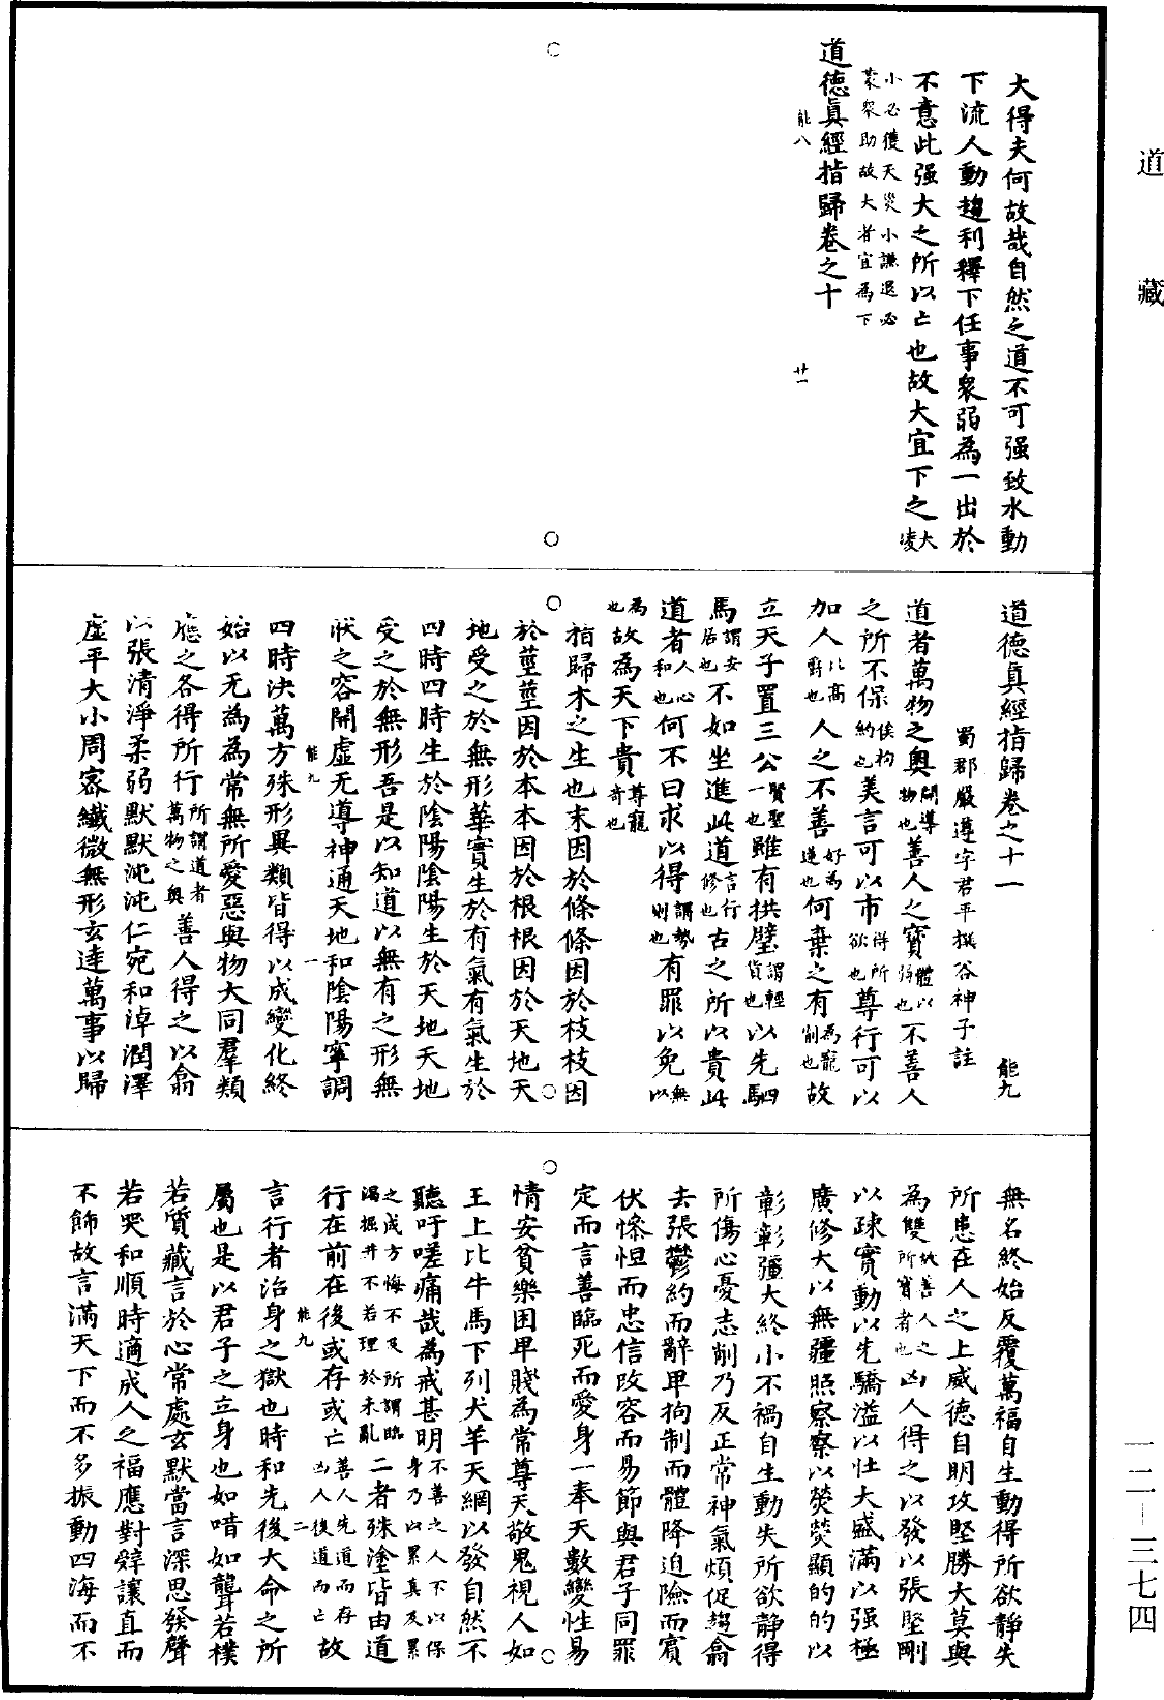 道藏
大得夫何故哉自然之道不可强致水動
下流人動趨利釋下任事衆弱為一出於
不意此强大之所以亡也故大宜下之大凌
小必獲天災小謙退必
蒙衆助故大者宜為下
道德真經指歸卷之十
能八 廿一
道德真經指歸卷之十一 能九
蜀郡嚴遵字君平撰谷神子註
道者萬物之奧開導物也善人之寶體以弱也不善人
之所不保俟拘約也美言可以市得所欲也尊行可以
加人比高爵也人之不善好為違也何棄之有為寵削也故
立天子置三公賢聖一也雖有拱璧謂輕貨也以先駟
馬謂安居也不如坐進此道言行修也古之所以貴此
道者人心和也何不曰求以得謂勢則也有罪以免無以
為也故為天下貴尊寵奇也
指歸木之生也末因於條條因於枝枝因
於莖莖因於本本因於根根因於天地天
地受之於無形華實生於有氣有氣生於
四時四時生於陰陽陰陽生於天地天地
受之於無形吾是以知道以無有之形無
狀之容開虛无導神通天地和陰陽寧調
能九 一
四時決萬方殊形異類皆得以成變化終
始以无為為常無所愛惡與物大同羣類
應之各得所行所謂道者萬物之奧善人得之以翕
以張清淨柔弱默默沌沌仁宛和淖潤澤
虛平大小周密纖微無形玄達萬事以歸
無名終始反覆萬福自生動得所欲靜失
所患在人之上威德自明攻堅勝大莫與
為雙故善人之所寶者也凶人得之以發以張堅剛
以疎實動以先驕溢以壯大盛滿以强極
廣修大以無疆照察察以熒熒顯的的以
彰彰彊大終小不禍自生動失所欲靜得
所傷心憂志削乃反正常神氣煩促趨翕
去張鬱約而辭卑拘制而體降迫險而賓
伏慘怛而忠信改容而易節與君子同罪
定而言善臨死而愛身一奉天數變性易
情安貧樂困卑賤為常尊天敬鬼視人如
王上比牛馬下列犬羊天網以發自然不
聽吁嗟痛哉為戒甚明不善之人下以保身乃以累真及累
之成方悔不及所謂臨渴掘井不若理於未亂二者殊塗皆由道
行在前在後或存或亡善人先道而存凶人後道而亡故
能九 二
言行者治身之獄也時和先後大命之所
屬也是以君子之立身也如喑如聾若樸
若質藏言於心常處玄默當言深思發聲
若哭和順時適成人之福應對辭讓直而
不飾故言滿天下而不多振動四海而不
一二—三七四